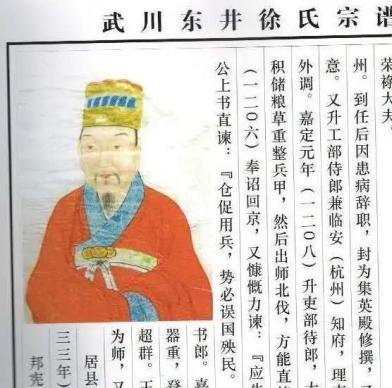 武川东井徐氏宗谱
荣禄大夫
州。到任后因患病辞职，封为集英殿修撰，
意。又升工部侍郎兼临安（杭州）知府，理
外调。嘉定元年（一二〇八）升吏部待郎，
积储粮草重整兵甲，然后出师北伐，方能直
（一二〇六）奉诏回京，又慷慨力谏：『应
公上书直谏：『仓促用兵，势必误国殃民。
书郎。嘉
器重，登
超群。王
为师，又
居县
三三年（
邦宪